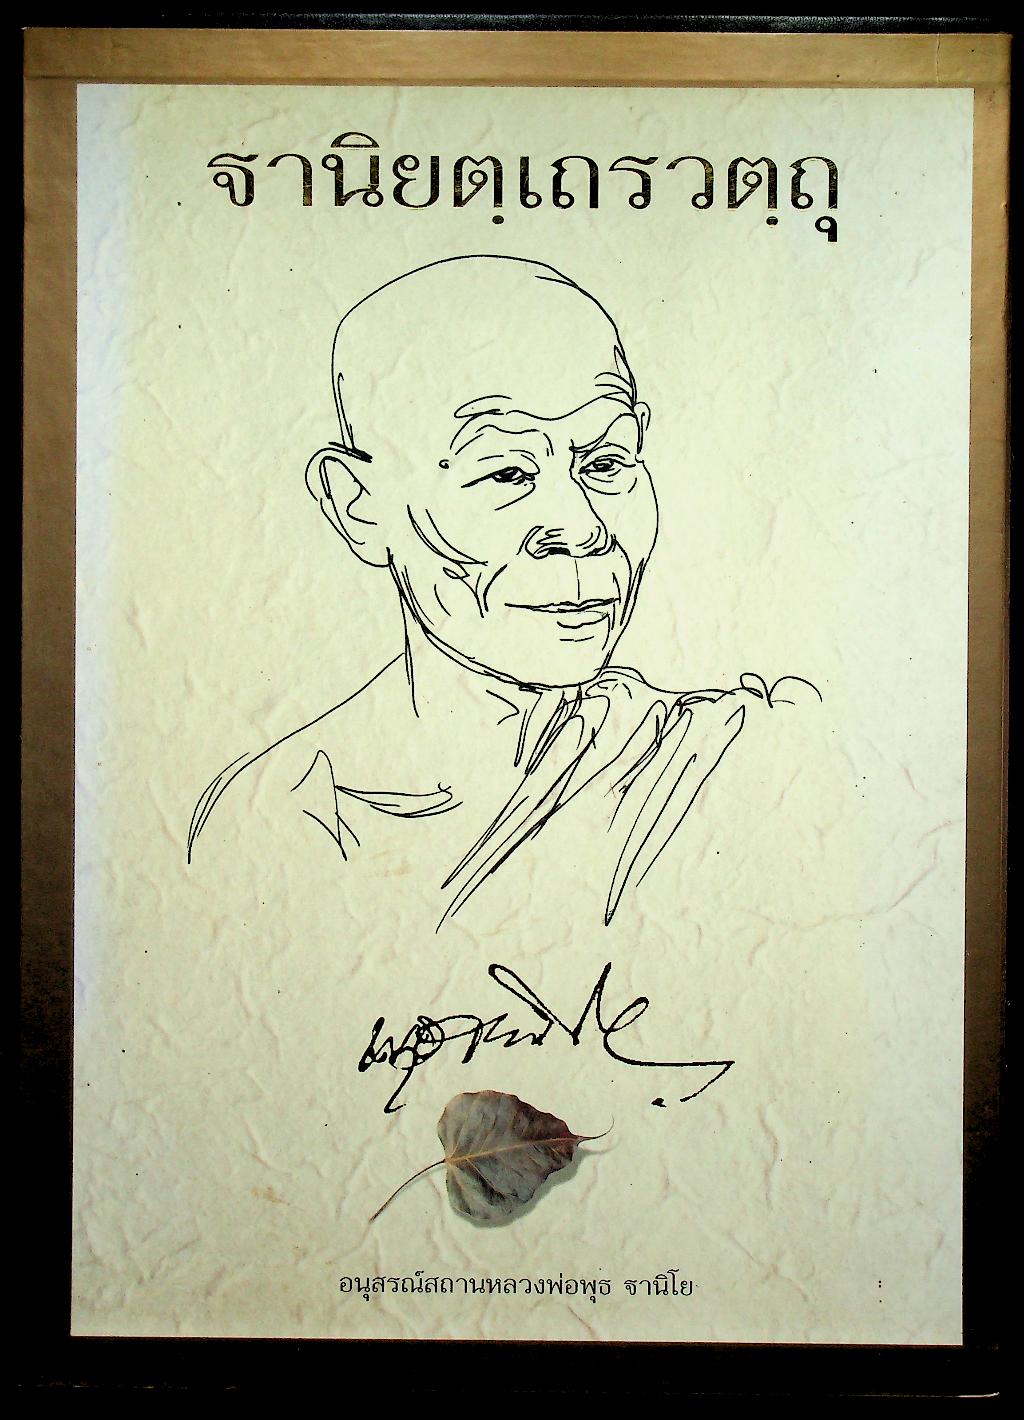 ฐานิยตฺเถรวตฺถุ
อนุสรณ์สถานหลวงพ่อพุธ ฐานิโย